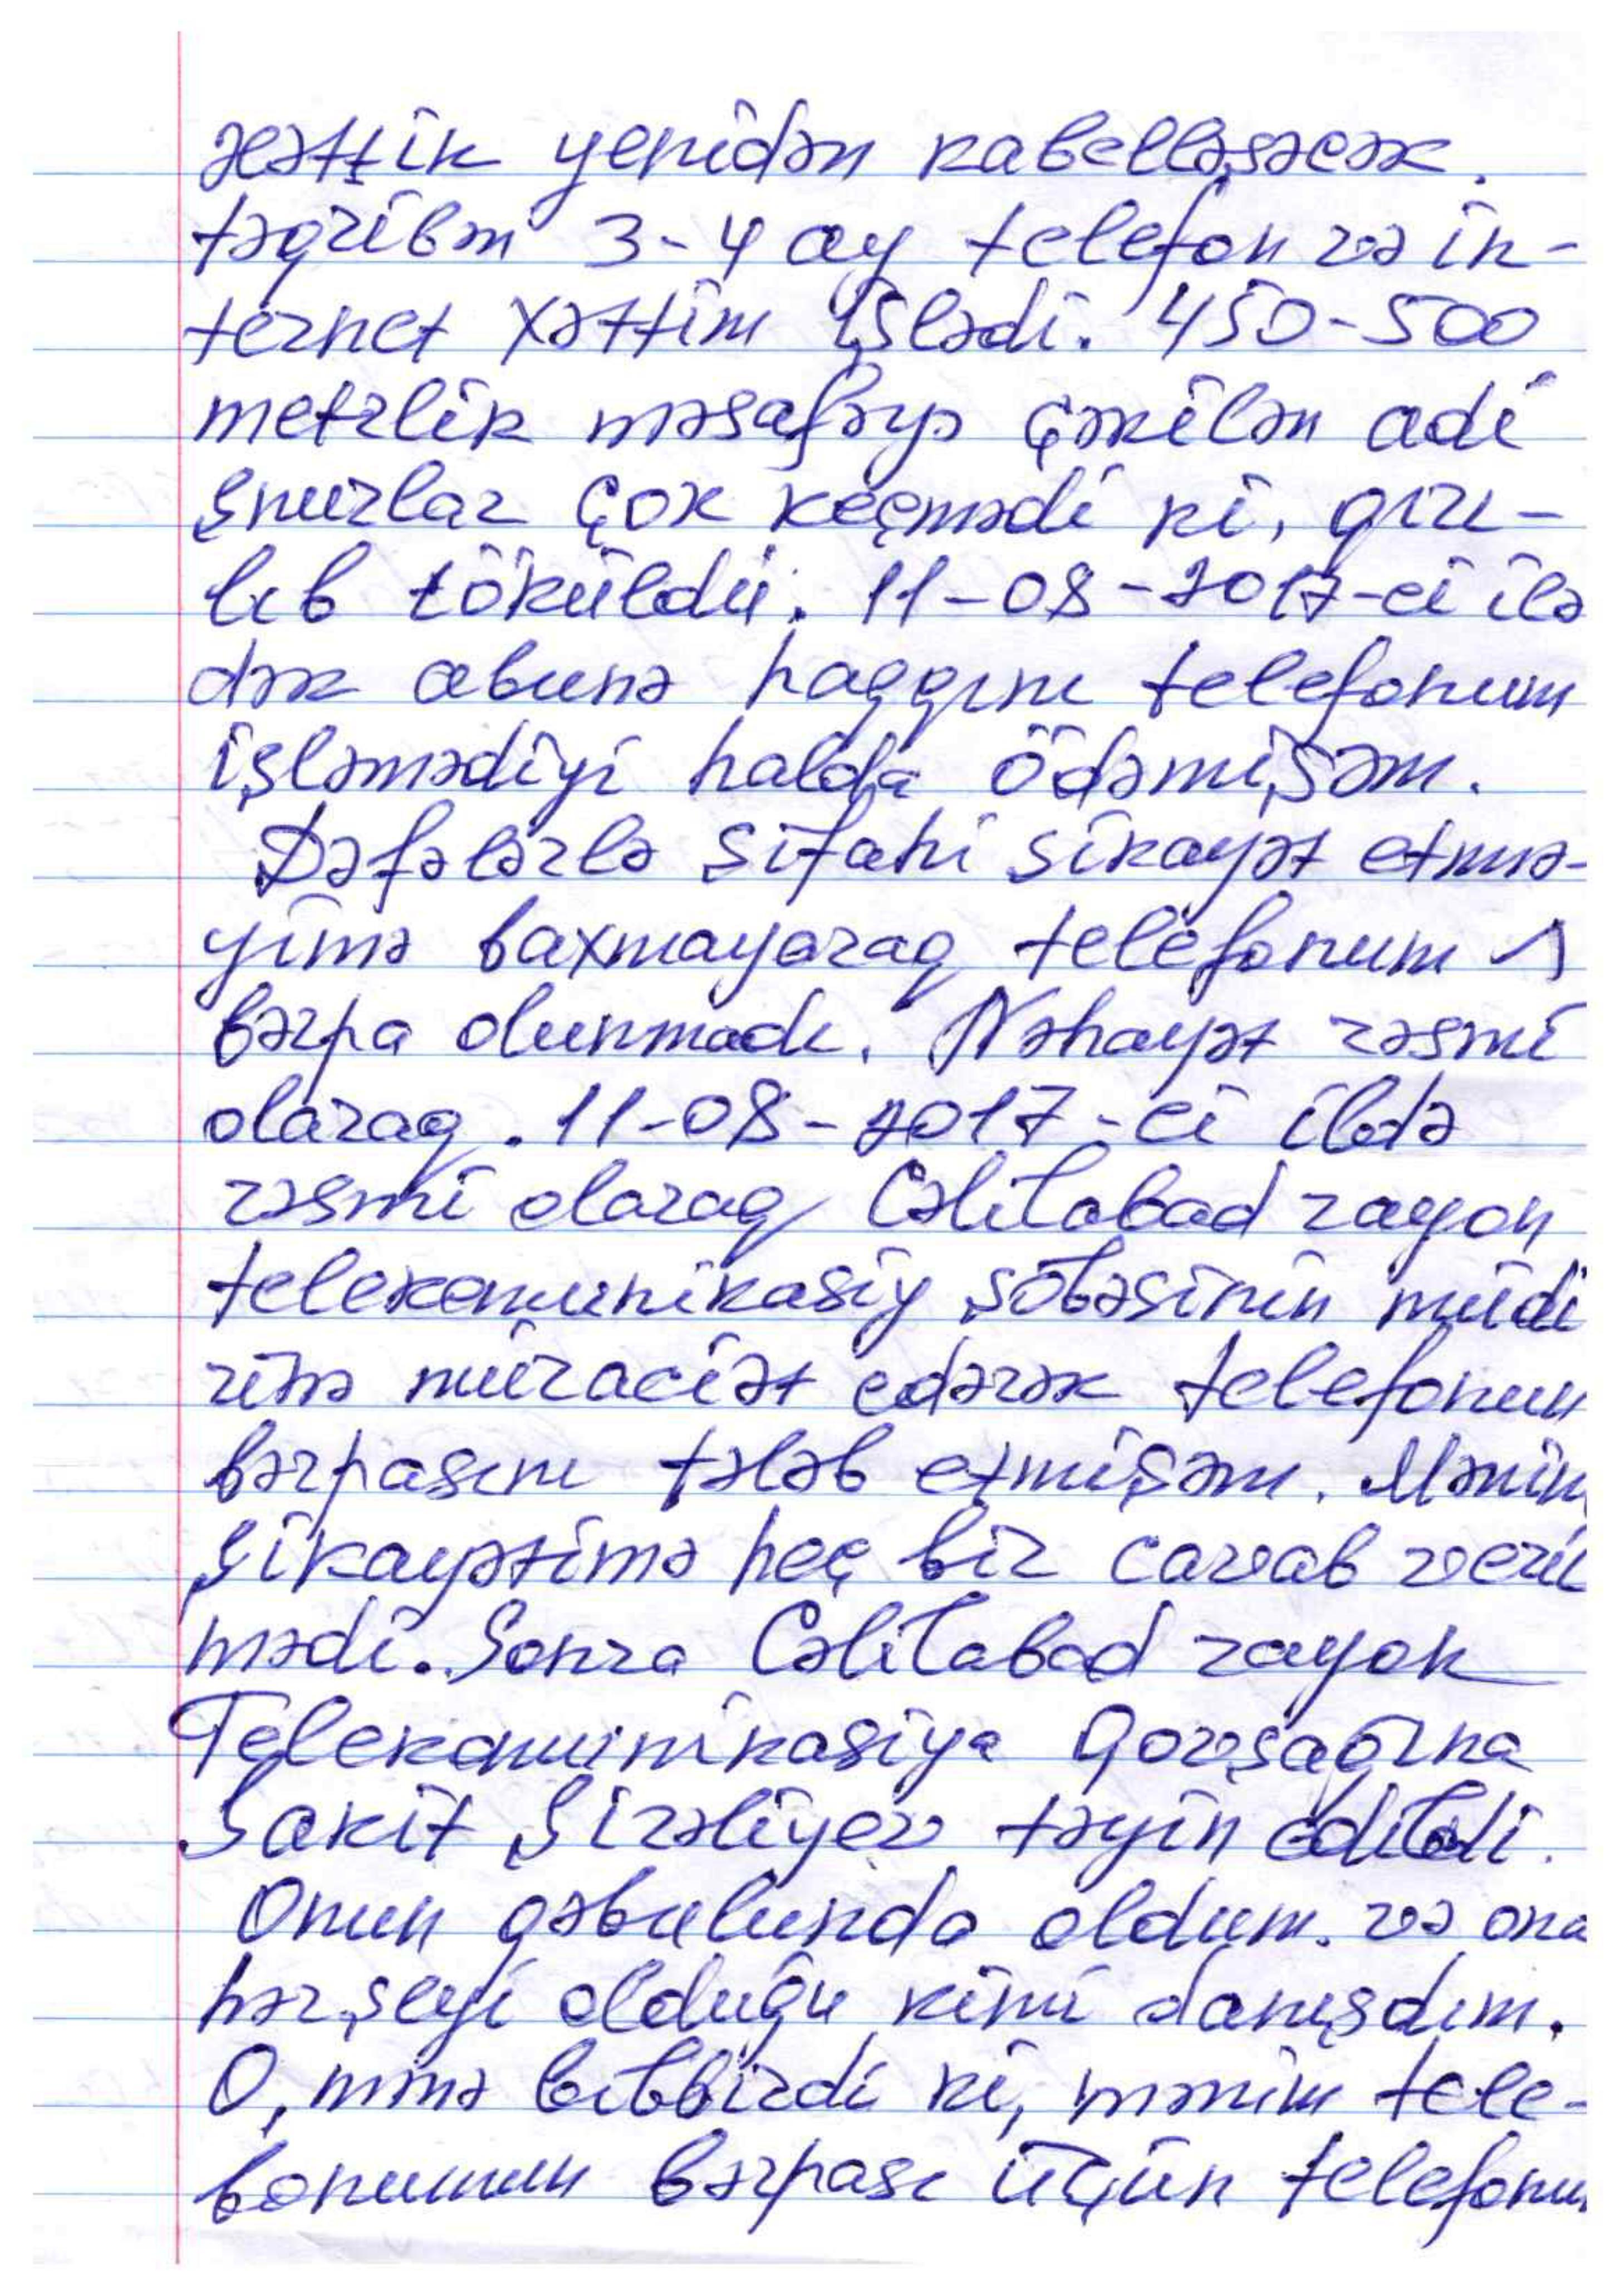 xəttik yenidən kabelləşəcək.
təqribən 3-4 ay telefon və in-
ternet xəttim işlədi. 450-500
metrlik məsafəyə çəkilən adi
şnurlar çox keçmədi ki, qırı-
lıb töküldü. 11-08-2017-ci ilə
dək abunə haqqını telefonum
işləmədiyi halda ödəmişəm.
Dəfələrlə şifahi şikayət etmə-
yimə baxmayaraq telefonum
bərpa olunmadı. Nəhayət rəsmi
olaraq. 11-08-2017-ci ildə
rəsmi olaraq Cəlilabad rayon
telekomunikasiy şöbəsinin müdi
rinə müraciət edərək telefonun
bərpasını tələb etmişəm. Mənim
şikayətimə heç bir cavab veril
mədi. Sonra Cəlilabad rayon
Telekomunikasiya Qovşağına
Sakit Şirəliyev təyin edildi.
Onun qəbulunda oldum. və ona
hər şeyi olduğu kimi danışdım.
O, mənə bilbirdi ki, mənim tele-
fonumun bərpası üçün telefonu